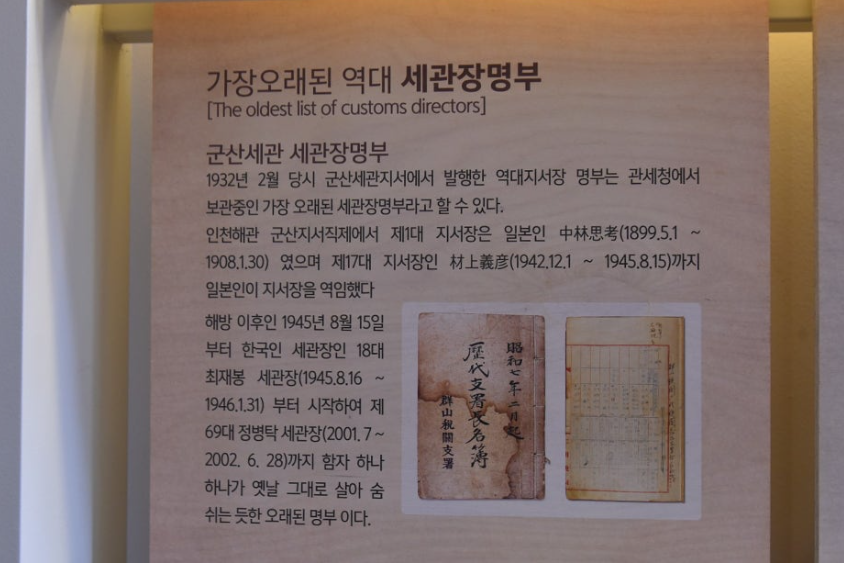 가장오래된 역대 세관장명부
[The oldest list of customs directors]
군산세관 세관장명부
1932년 2월 당시 군산세관지서에서 발행한 역대지서장 명부는 관세청에서
보관중인 가장 오래된 세관장명부라고 할 수 있다.
인천해관 군산지서직제에서 제1대 지서장은 일본인 中林思考(1899.5.1 ~
1908.1.30) 였으며 제17대 지서장인 材上義彦(1942.12.1 ~ 1945.8.15)까지
일본인이 지서장을 역임했다
해방 이후인 1945년 8월 15일
부터 한국인 세관장인 18대
최재봉 세관장(1945.8.16 ~
1946.1.31) 부터 시작하여 제
69대 정병탁 세관장(2001. 7 ~
2002. 6. 28)까지 함자 하나
하나가 옛날 그대로 살아 숨
쉬는 듯한 오래된 명부 이다.
昭和七年二月起
歷代支署長名簿
群山稅關支署